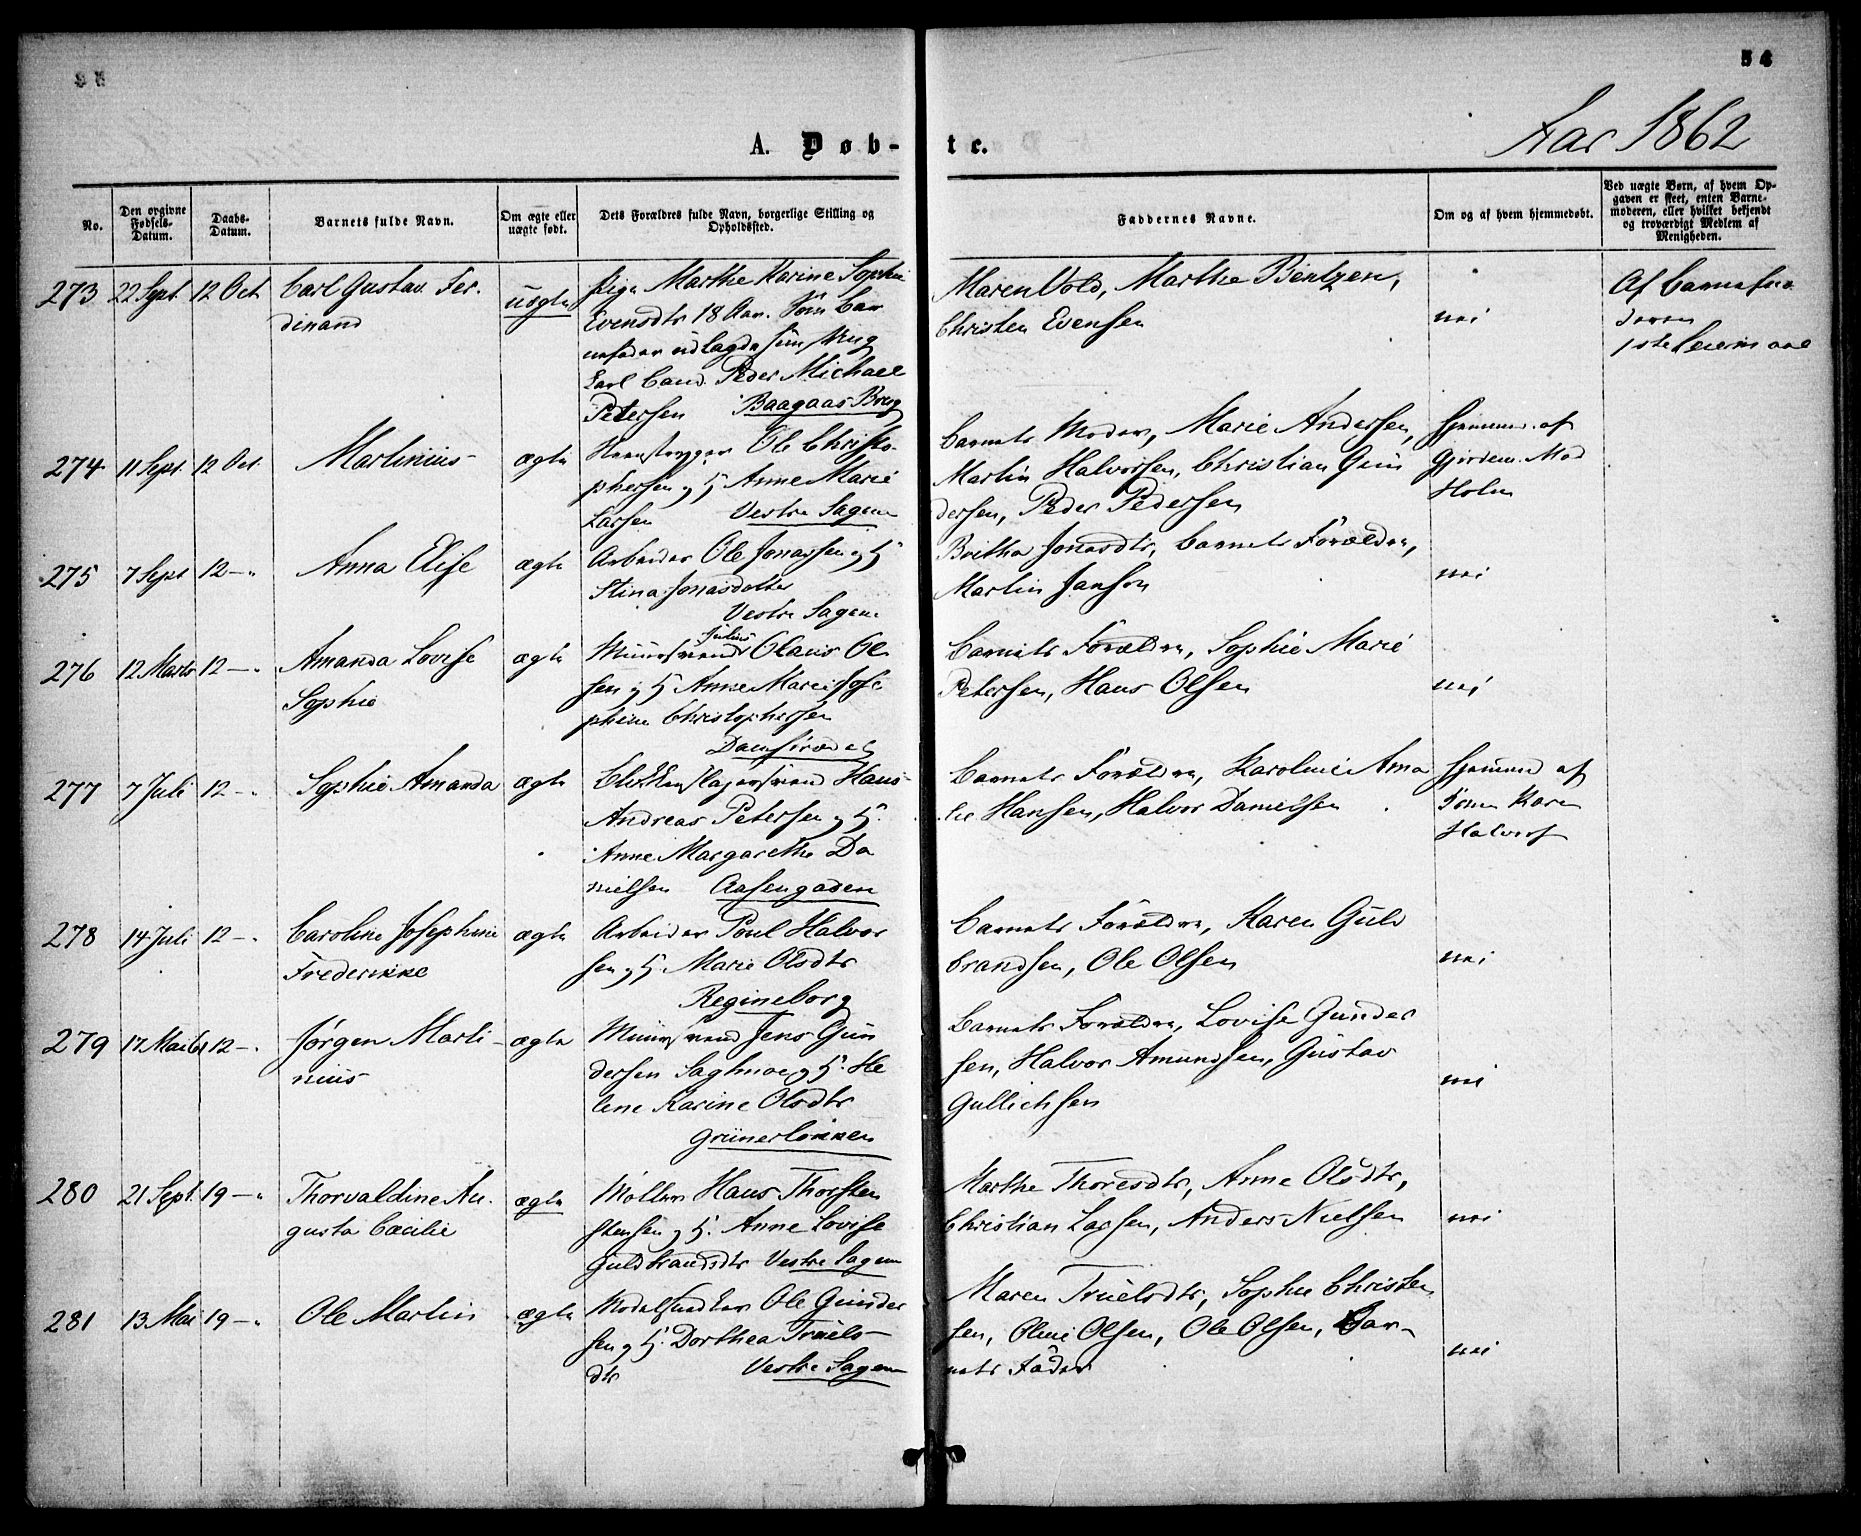 54
Aar 1862
A. Døb-
te.
No.
Den opgivne Fødsels-Datum.
Daabs-Datum.
Barnets fulde Navn.
Om ægte eller uægte født.
Dets Forældres fulde Navn, borgerlige Stilling og Opholdssted.
Faddernes Navne.
Om og af hvem hjemmedøbt.
Ved uægte Børn, af hvem Opgaven er skeet, enten Barnemoderen, eller hvilket bekjendt og troværdigt Medlem af Menigheden.
273 22 Sept. 12 Oct.
Carl Gustav Fer-
dinand
uægte
Pige Marthe Karine Sophie
Evensdtr 18 Aar. Som Bar
nefader udlagdes Ung
Carl Cand. Peder Michael
Petersen Baagaas Brug
Maren Vold, Marthe Bentzen,
Christen Evensen
nei
Af Barnefa
deren
1ste Leiermaal
274 11 Sept. 12 Oct.
Martinius
ægte
Ole Christo-
phersen og H Anne Marie
Larsen Vestre Sagene
Barnets Moder, Marie Andersen,
Martin Halvorsen, Christian Gun
dersen, Peder Pedersen
Hjemmed. af
Gjordem. Mad
Holm
275 7 Sept 12 — "
Anna Elise
ægte
Arbeider Ole Jonassen og H
Stina Jonasdotter
Vestre Sagene
Britha Jonasdtr, Barnets Forældre,
Martin Janson
nei
276 12 Marts 12 — "
Amanda Lovise
Sophie
ægte
Julius
Muursvend Olaus Ol
sen og H Anne Marie Jose
phine Christophersen
Damstrædet
Barnets Forældre, Sophie Marie
Petersen, Hans Olsen
nei
277 7 Juli 12 — "
Sophie Amanda
ægte
Blikkenslagersvend Hans
Andreas Petersen og H.
Anne Margarethe Da
nielsen Aasengaden
Barnets Forældre, Karoline Ama
lie Hansen, Halvor Danielsen
Hjemmed af
Karen
Halvors
278 14 Juli 12 — "
Caroline Josephine
Frederikke
ægte
Arbeider Poul Halvor
sen og H. Marie Olsdtr
Regineborg
Barnets Forældre, Karen Guld
brandsen, Ole Olsen
nei
279 17 Mai 61 12 — "
Jørgen Marti-
nius
ægte
Muursvend Jens Gun
dersen Saghuae og H. He
lene Karine Olsdtr
Grünerløkken
Barnets Forældre, Lovise Gunder
sen, Halvor Amundsen, Gustav
Gullichsen
nei
280 21 Sept. 19 — "
Thorvaldine Au-
gusta Cæcilie
ægte
Møller Hans Thorsten
stensen og H. Anne Lovise
Guldbrandsdtr Vestre Sagene
Marthe Thoresdtr, Anne Olsdtr,
Christian Larsen, Anders Nielsen
nei
281 13 Mai 19 — "
Ole Martin
ægte
Modelsnedker Ole Gunder
sen og H. Dorthea Truels-
dtr Vestre Sagene
Maren Truelsdtr, Sophie Christen
sen, Oline Olsen, Ole Olsen, Bar-
nets Fader
nei